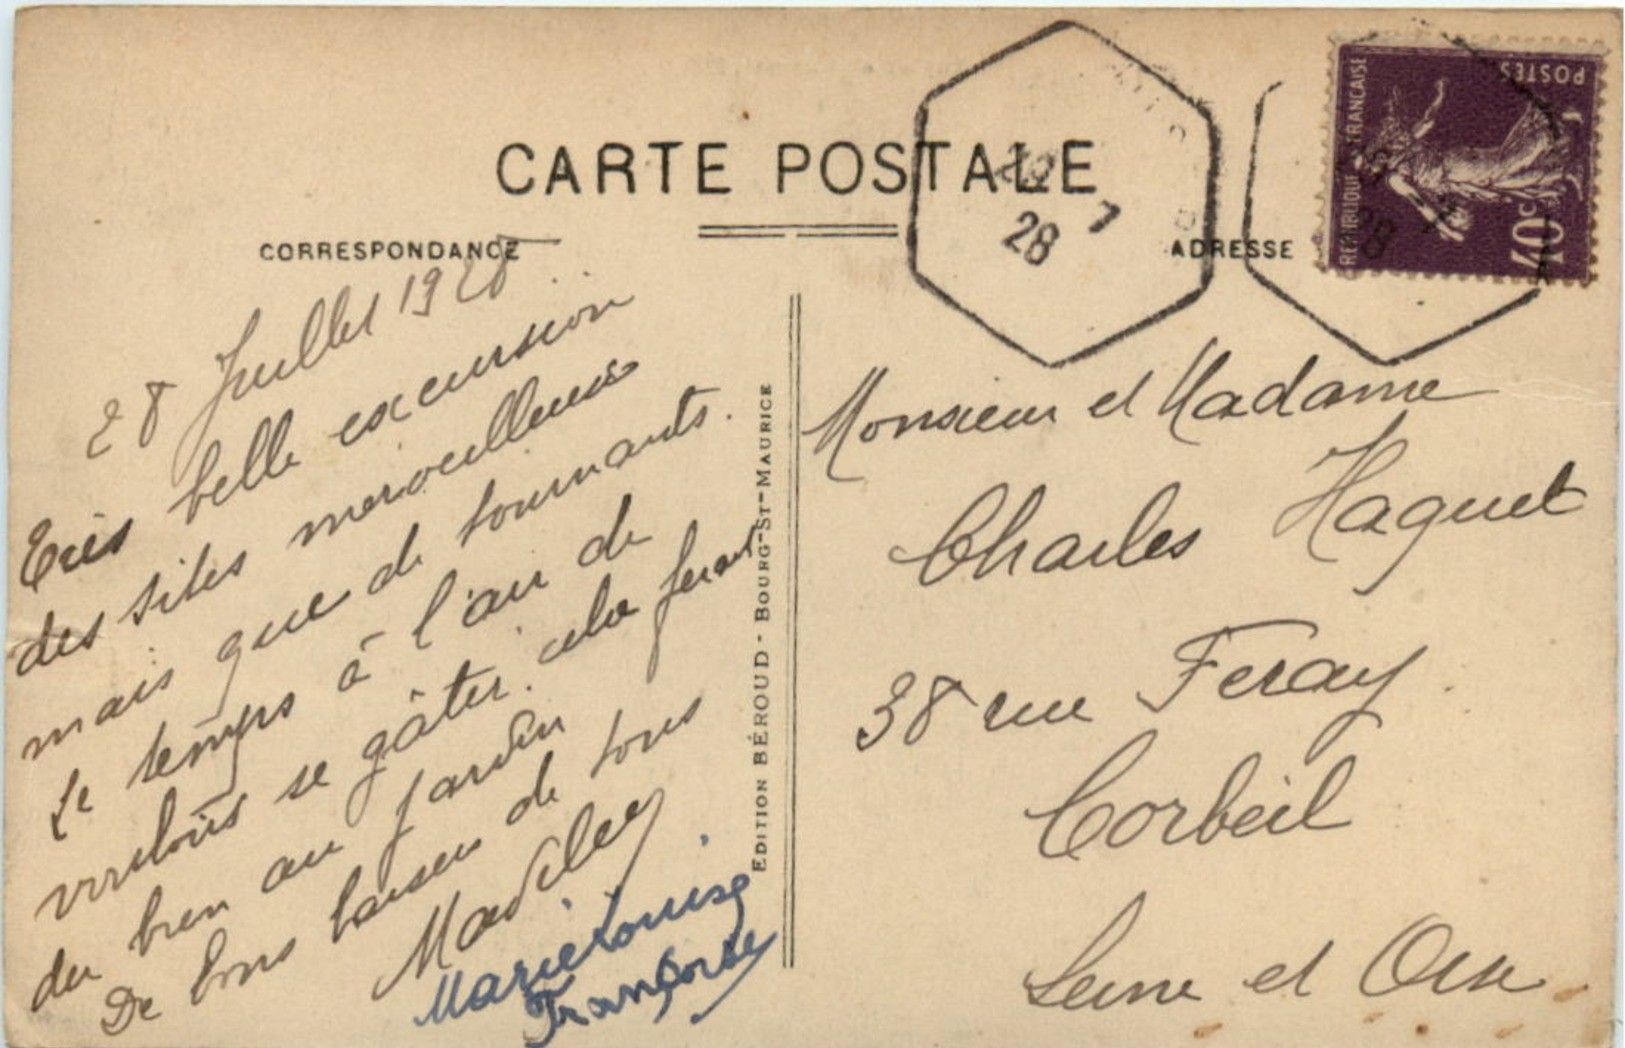 CARTE POSTALE
CORRESPONDANCE
ADRESSE
RÉPUBLIQUE FRANÇAISE
POSTES
40c
28 7
28
28 Juillet 1928
Très belle excursion
des sites merveilleux
mais que de tournants.
Le temps à l'air de
vouloir se gâter. cela ferait
du bien au jardin
De bons baisers de tous
Marie Louise
Françoise
EDITION BÉROUD - BOURG-ST-MAURICE
Monsieur et Madame
Charles Haguet
38 rue Feray
Corbeil
Seine et Oise